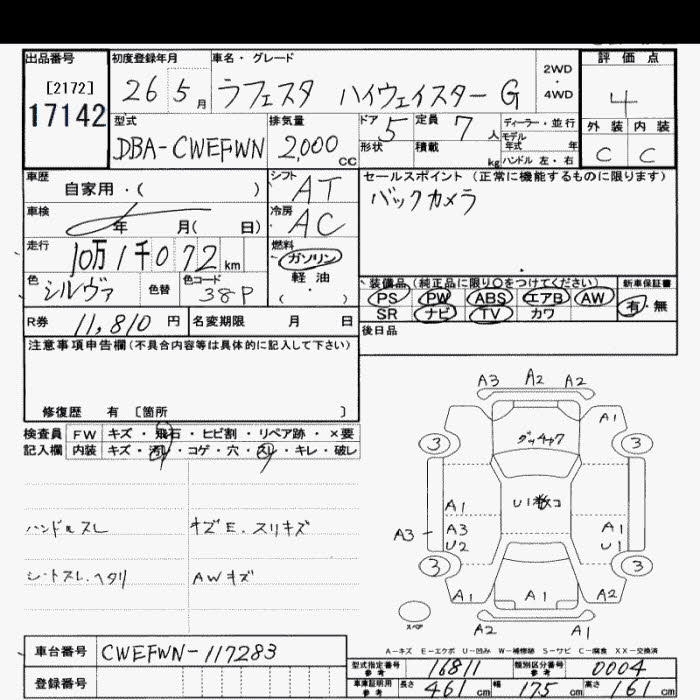 出品番号
[2172]
17142
初度登録年月
26 5月
車名・グレード
ラフェスタ ハイウェイスター G
2WD
・
4WD
評価点
4
外装 内装
C C
型式
DBA-CWEFWN
排気量
2,000 cc
ドア 5
形状
定員 7 人
積載 kg
ディーラー・並行
モデル
年式 年
ハンドル 左・右
車歴
自家用・( )
シフト
AT
セールスポイント (正常に機能するものに限ります)
バックカメラ
車検
年 月( 日)
冷房
AC
走行
10万1千072 km
燃料
ガソリン
軽油
( )
色
シルヴァ
色替
色コード
38P
装備品(純正品に限り○をつけてください)
PS PW ABS エアB AW
SR ナビ TV カワ
新車保証書
有・無
R券 11,810 円
名変期限 月 日
後日品
注意事項申告欄(不具合内容等は具体的に記入して下さい)
修復歴 有 〔箇所 〕
検査員 FW キズ・飛石・ヒビ割・リペア跡・×要
記入欄 内装 キズ・汚れ・コゲ・穴・スレ・キレ・破レ
ハンドルスレ キズE.スリキズ
シートスレ.ヘタリ AWキズ
A3 A2 A2
A1
3 3
A1
A3 A3
U2
A1
U1
3 3
A1 A1 A2
A2 A1
スペア
A-キズ E-エクボ U-凹み W-補修跡 S-サビ C-腐食 XX-交換済
車台番号 CWEFWN-117283
登録番号
型式指定番号
参考
16811
類別区分番号
参考
0004
車庫証明用
参考
長さ 461 cm 幅 175 cm 高さ 161 cm